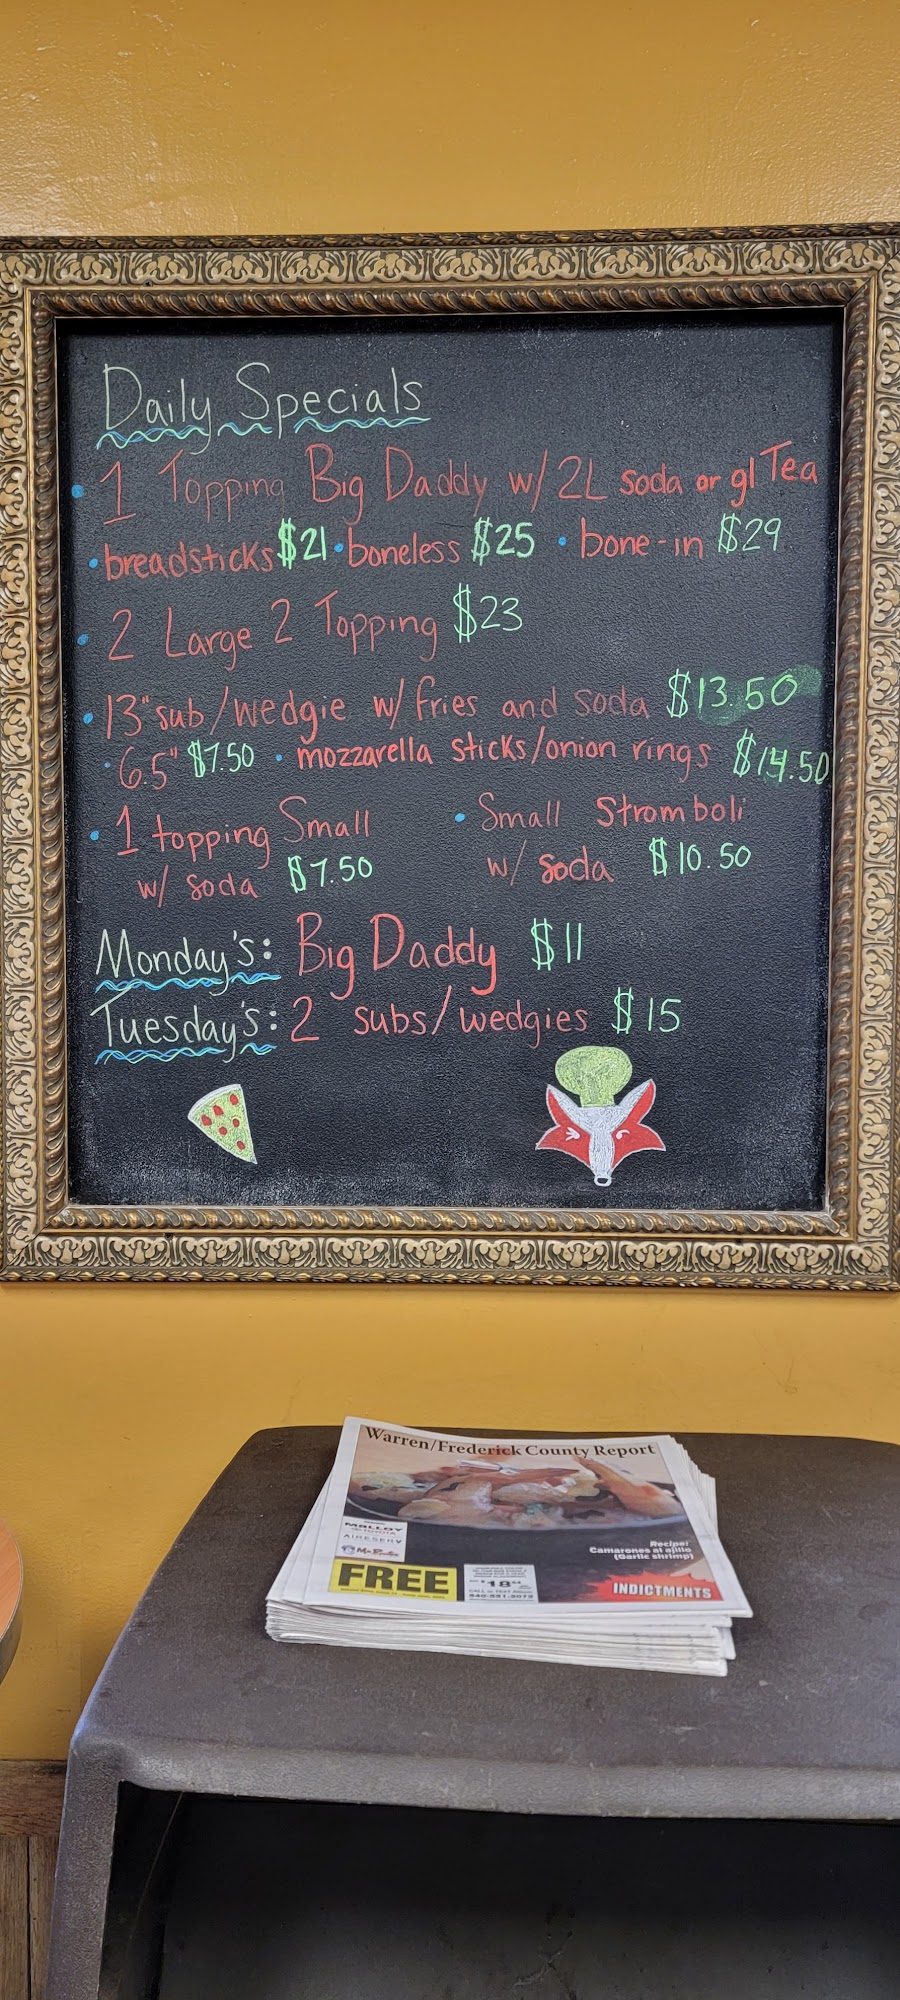 Daily Specials
• 1 Topping Big Daddy w/ 2L soda or gl Tea
• breadsticks $21 • boneless $25 • bone-in $29
• 2 Large 2 Topping $23
• 13" sub/wedgie w/ fries and soda $13.50
• 6.5" $7.50 • mozzarella sticks/onion rings $14.50
• 1 topping Small
w/ soda $7.50
• Small Stromboli
w/ soda $10.50
Monday's: Big Daddy $11
Tuesday's: 2 subs/wedgies $15
Warren/Frederick County Report
MALLOY
TOYOTA
AIRESERV
Recipe:
Camarones al ajillo
(Garlic shrimp)
FREE
$18
CALL or TEXT
INDICTMENTS